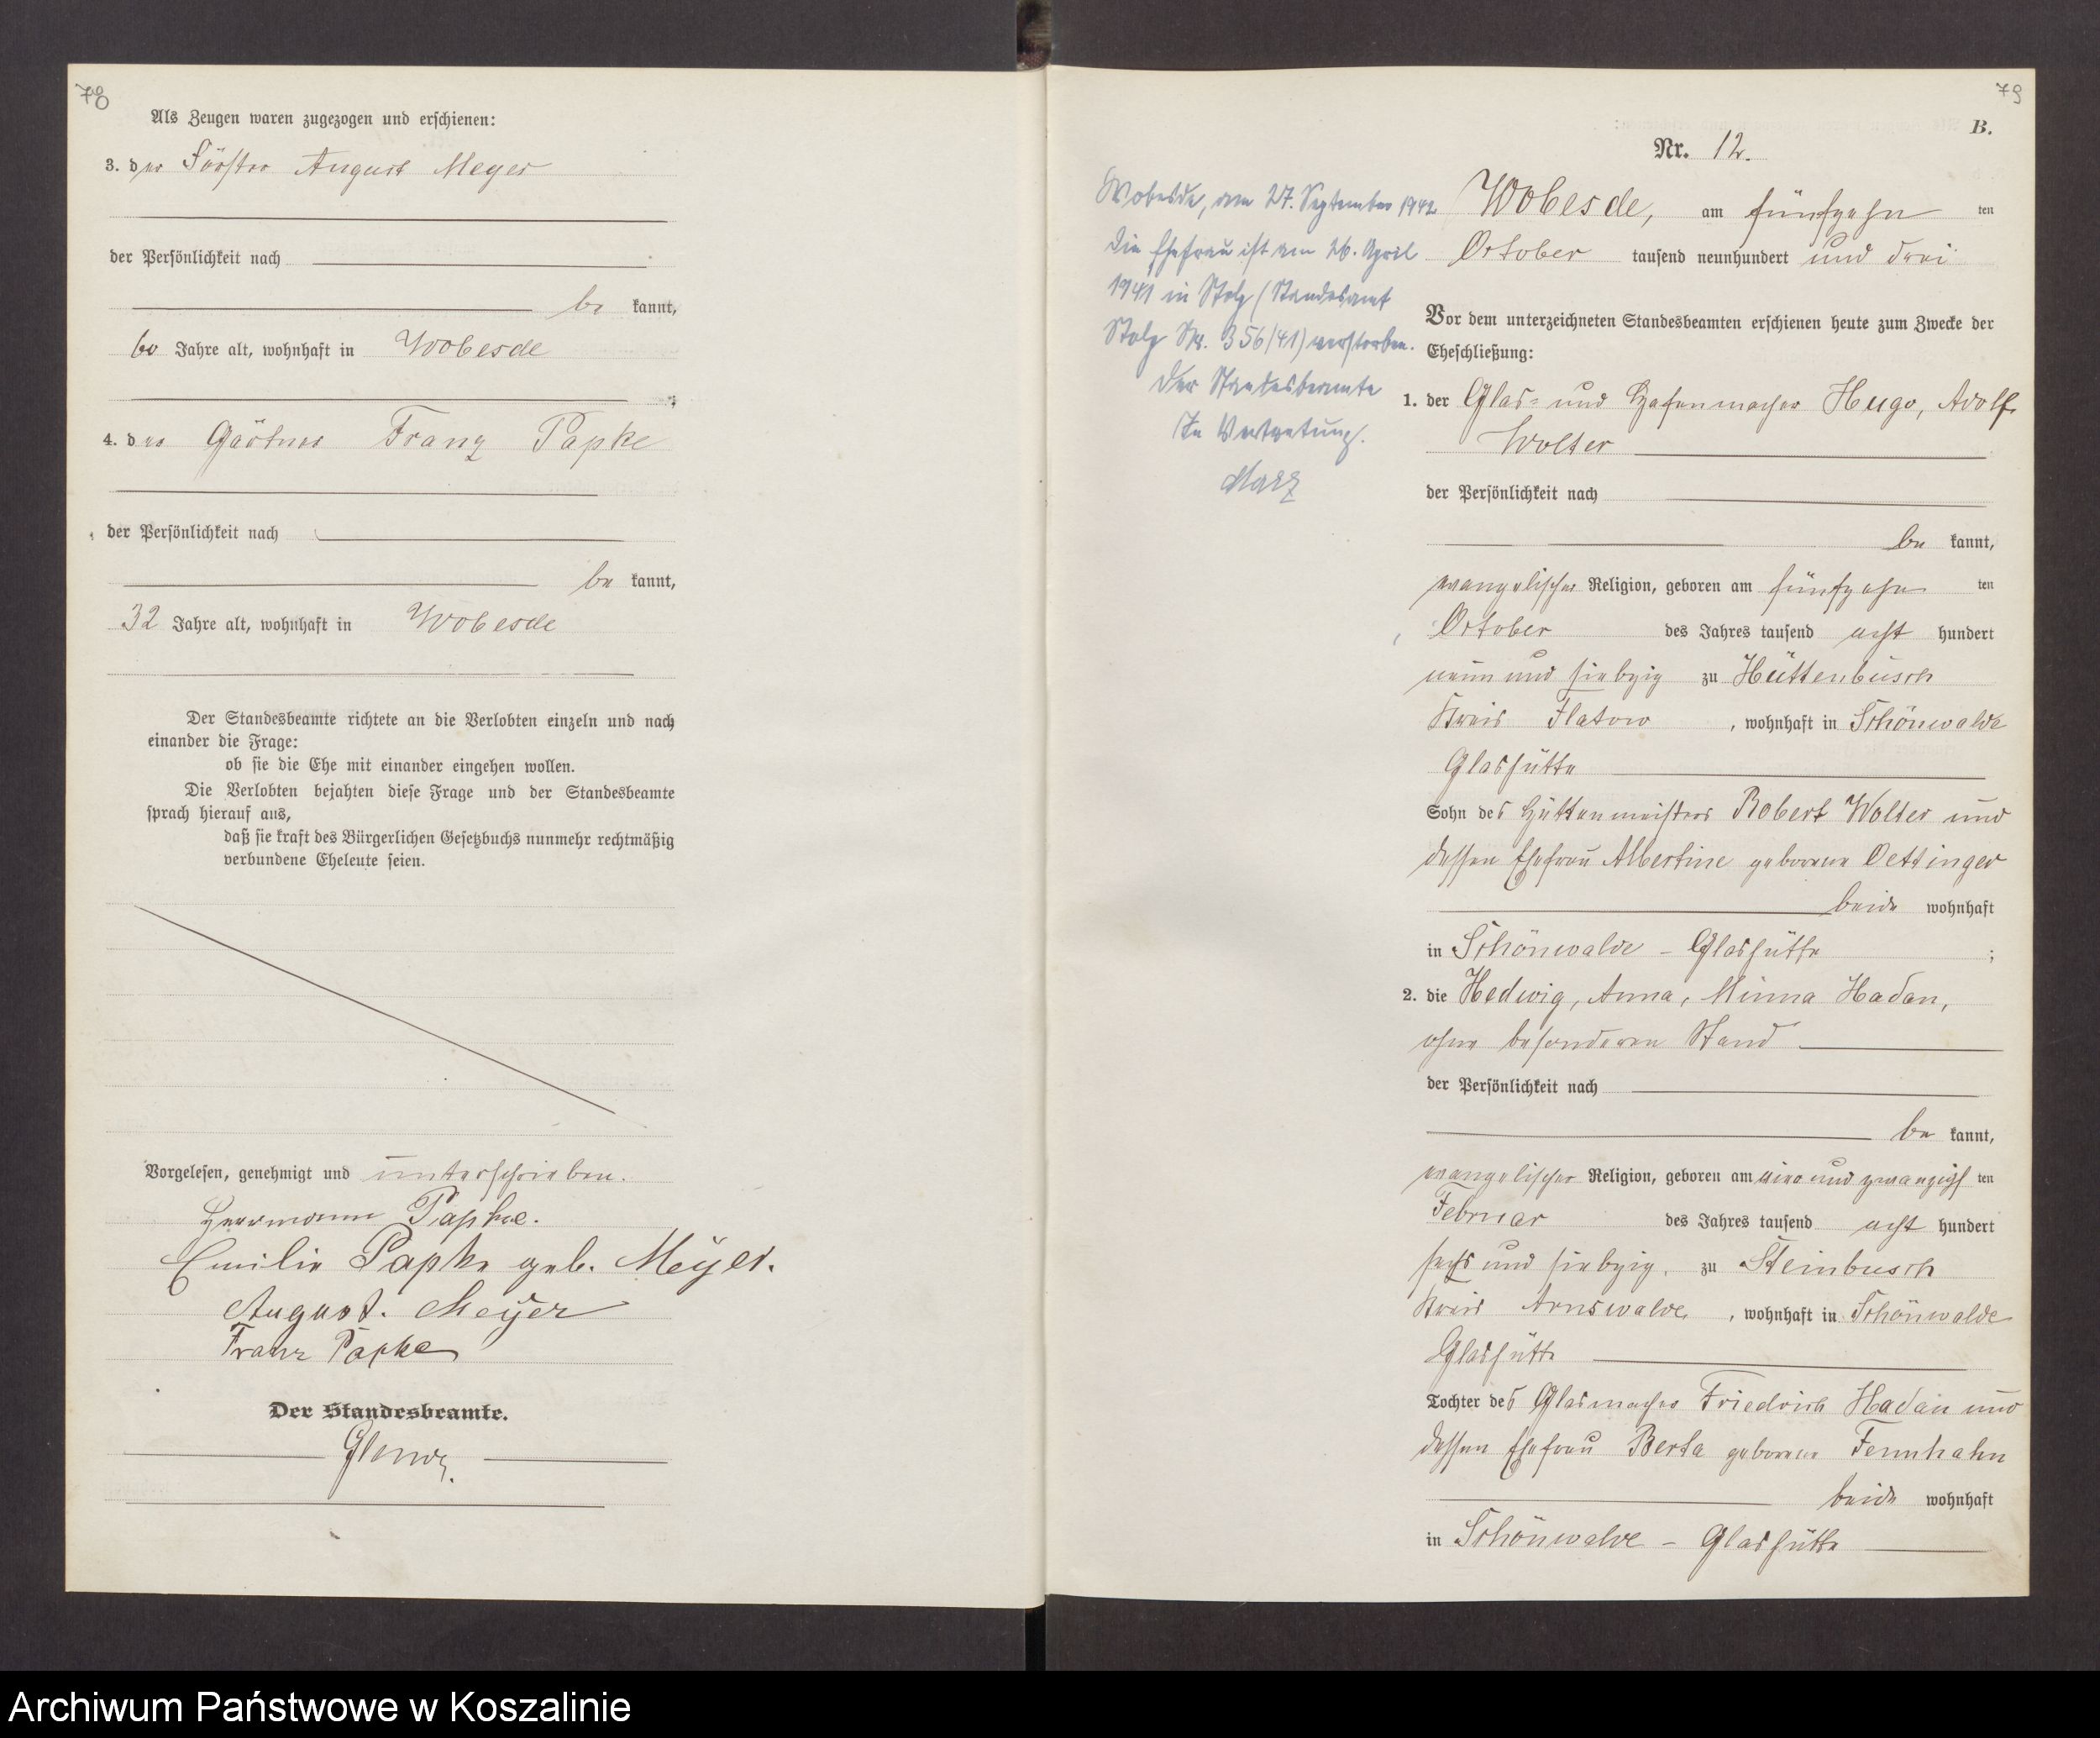 78
Als Zeugen waren zugezogen und erschienen:
3. der Förster August Meyer
der Persönlichkeit nach
be kannt,
60 Jahre alt, wohnhaft in Wobesde
;
4. der Gärtner Franz Papke
der Persönlichkeit nach
be kannt,
32 Jahre alt, wohnhaft in Wobesde
Der Standesbeamte richtete an die Verlobten einzeln und nach
einander die Frage:
ob sie die Ehe mit einander eingehen wollen.
Die Verlobten bejahten diese Frage und der Standesbeamte
sprach hierauf aus,
daß sie kraft des Bürgerlichen Gesetzbuchs nunmehr rechtmäßig
verbundene Eheleute seien.
Vorgelesen, genehmigt und unterschrieben.
Herrmann Papke.
Emilie Papke geb. Meyer.
August. Meyer
Franz Papke
Der Standesbeamte.
79
B.
Nr. 12.
Wobesde, am 27. September 1942
Die Ehefrau ist am 26. April
1941 in Stolp (Standesamt
Stolp Nr. 356/41) verstorben.
Der Standesbeamte
In Vertretung.
Wobesde, am fünfzehn ten
October tausend neunhundert und drei
Vor dem unterzeichneten Standesbeamten erschienen heute zum Zwecke der
Eheschließung:
1. der Glas- und Hafenmacher Hugo, Adolf
Wolter
der Persönlichkeit nach
be kannt,
evangelischer Religion, geboren am fünfzehn ten
October des Jahres tausend acht hundert
neun und siebzig zu Hüttenbusch
Kreis Flatow, wohnhaft in Schönwalde
Glashütte
Sohn des Hüttenmeisters Robert Wolter und
dessen Ehefrau Albertine geborene Oettinger
beide wohnhaft
in Schönwalde - Glashütte ;
2. die Hedwig, Anna, Minna Hadan,
ohne besonderen Stand
der Persönlichkeit nach
be kannt,
evangelischer Religion, geboren am ein und zwanzigs ten
Februar des Jahres tausend acht hundert
sechs und siebzig. zu Steinbusch
Kreis Arnswalde, wohnhaft in Schönwalde
Glashütte
Tochter des Glasmacher Friedrich Hadan und
dessen Ehefrau Berta geborene Fennhahn
beide wohnhaft
in Schönwalde - Glashütte
Archiwum Państwowe w Koszalinie